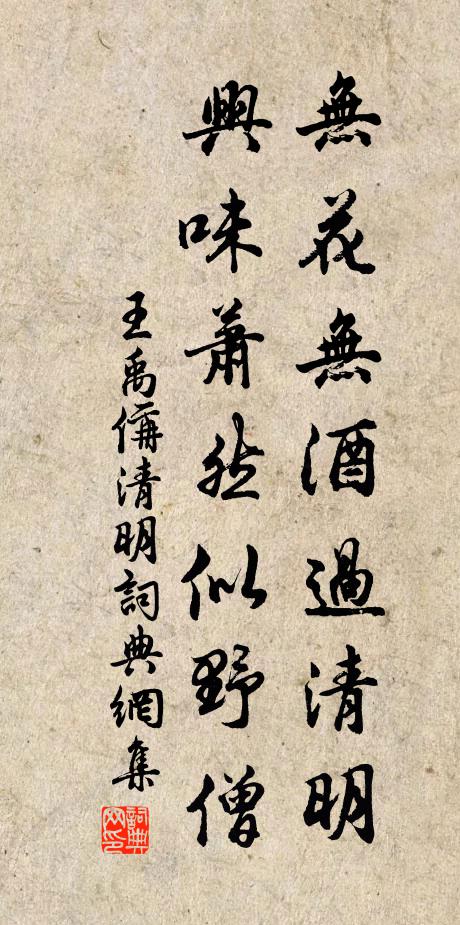 無花無酒過清明
興味蕭然似野僧
王禹偁清明詞典網集
詞典網印